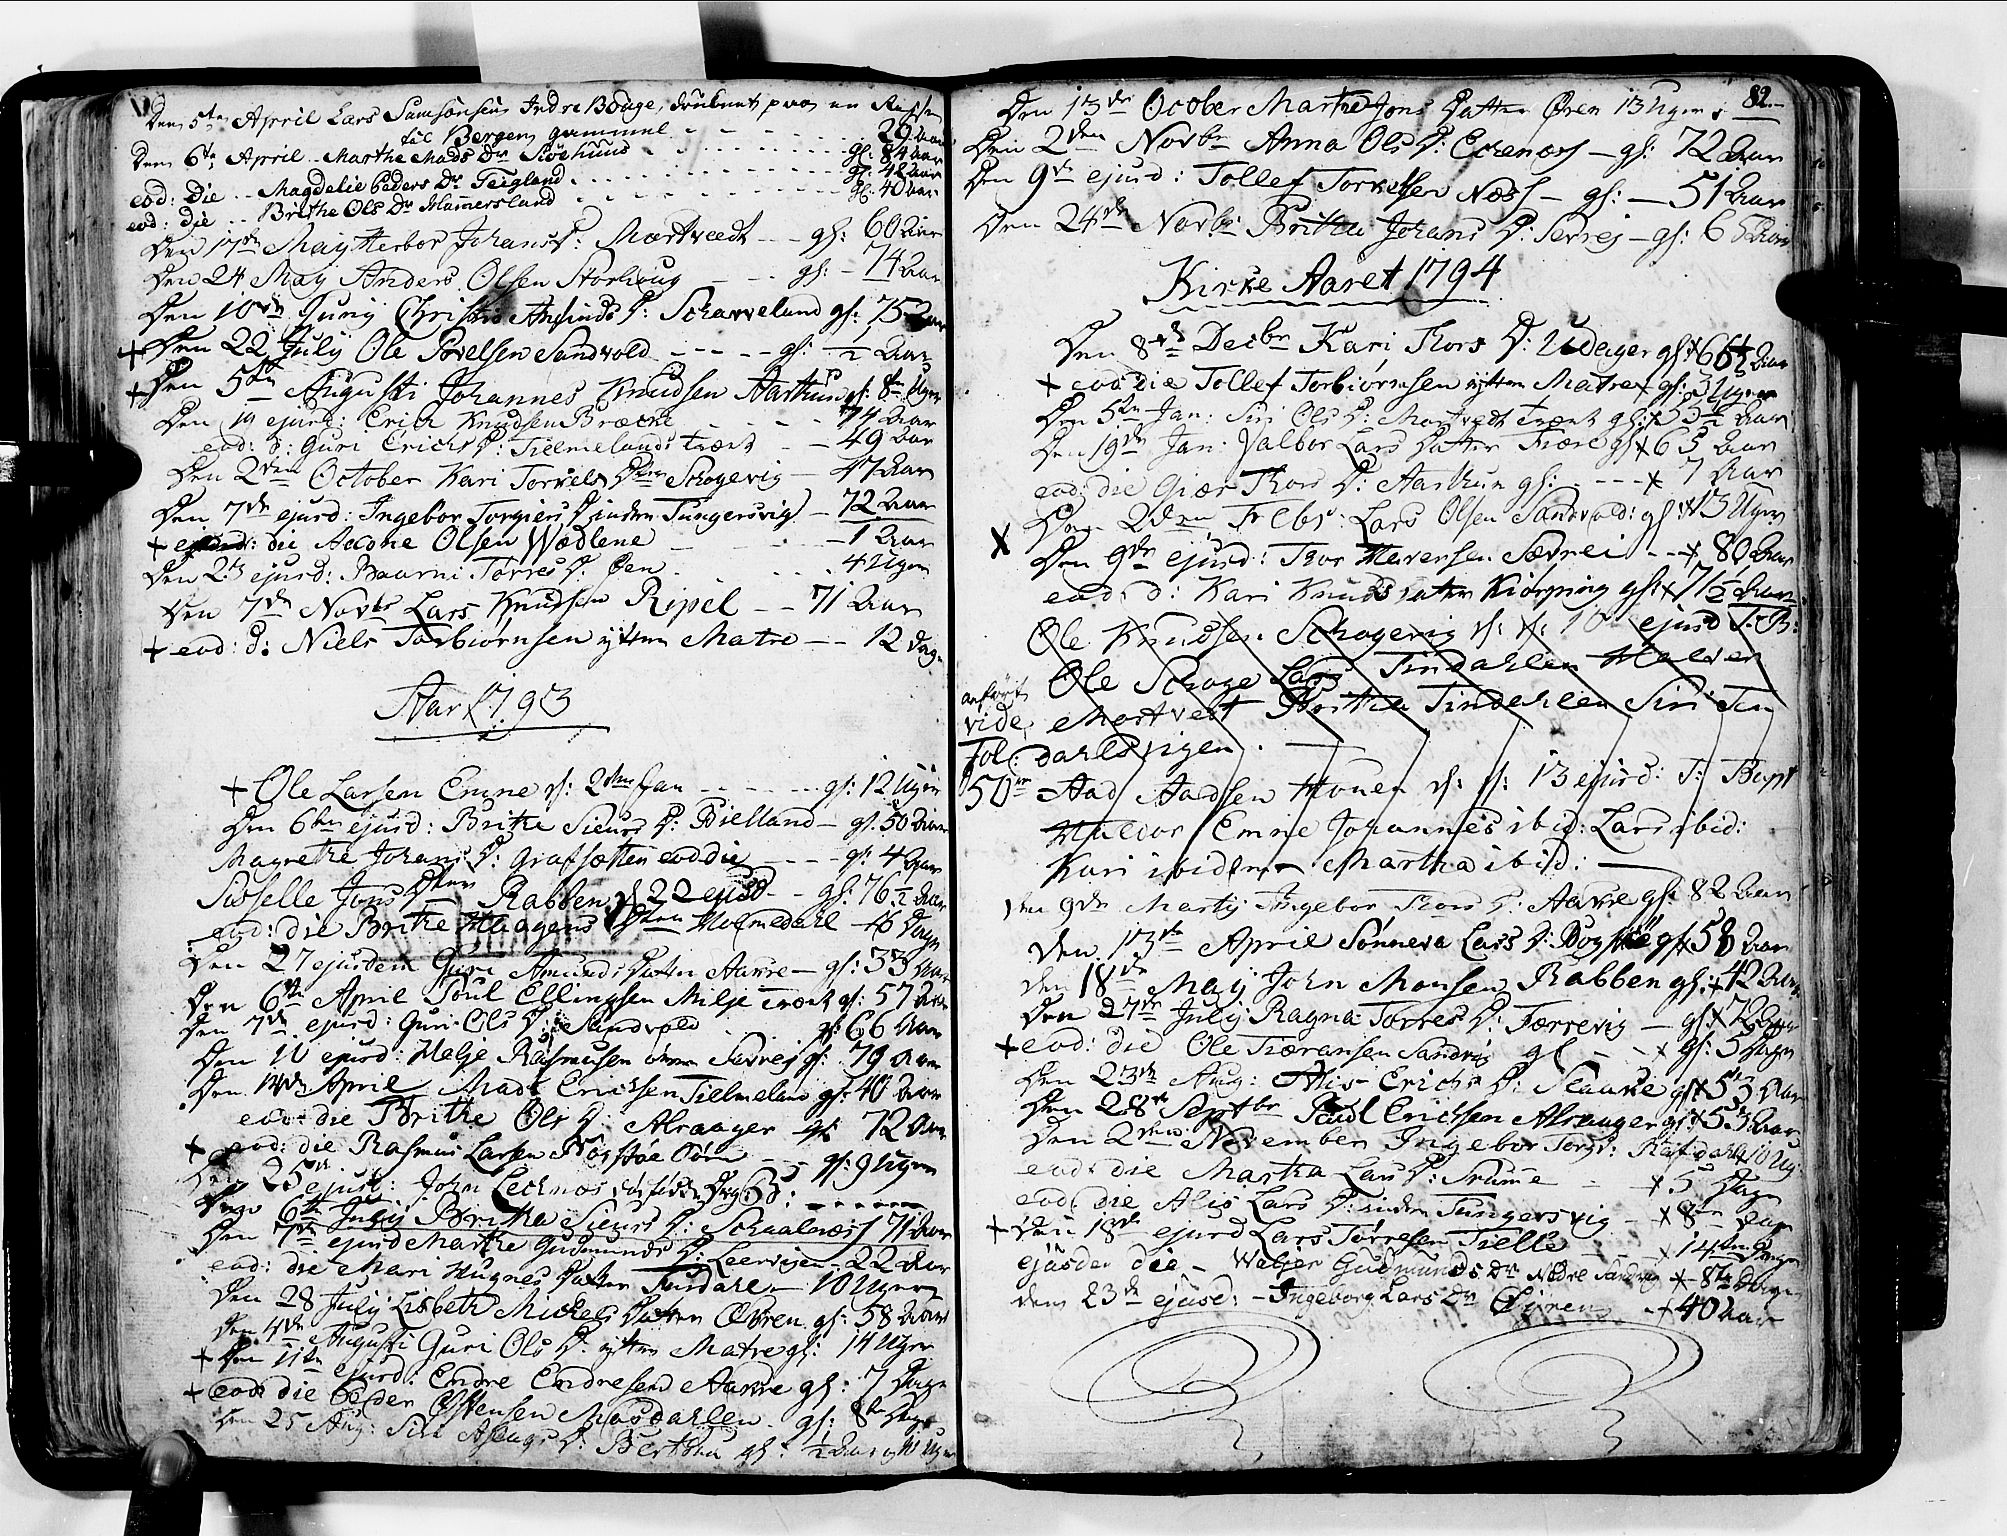 Den 5te April Lars Samsonsens Indre Boage, druknet paa en Rejse
til Bergen gammel - - - 29 Aar
Den 6te April - Marthe Mads Dr Siøehuus - - - gl: 84 Aar
eod: die - - Magdelie Peders Dr Teigland - - - gl: 42 Aar
eod: die - - Brithe Ols Dr Hammersland - - - gl: 40 Aar
Den 17de May Herbor Johans D: Mortvedt - - gl: 60 Aar
Den 24 May Anders Olsen Storhoug - - - gl: - 74 Aar
Den 10de Juny Christi Amunds D: Scharveland gl: 75 Aar
+ Den 22 July Ole Povelsen Sandvold - - - - gl: ½ Aar
+ Den 5te Augusti Johannes Knudsen Aarhuus gl: 8te Uger
Den 19 ejusd: Erich Knudsen Bræcke - - - 74 Aar
eod: d: Guri Erichs D: Tielmeland: træet - 49 Aar
Den 2den October Kari Torkels Dter Schogevig - 47 Aar
Den 7de ejusd: Ingebor Torgiers D indre Tungesvig - 72 Aar
+ die Aadne Olsen Wadlene - - - 1 Aar
Den 23 ejusd: Baarni Torres D: Øen - - - 4 Uger
Den 7de Novbr Lars Knudsen Ripel - - 71 Aar
+ eod: d: Niels Torbiørnsen yttre Matre - - 12 Dage
Aar 1793
+ Ole Larsen Emne d: 2den Jan - - - - gl: 12 Uger
Den 6te ejusd: Brithe Siurs D: Bielland - gl: 50 Aar
Magrethe Johans D: Grafsætter eod die - - - gl: 4 Aar
Sisselle Jons Dter Rabben d 22 ejusd - gl: 76½ Aar
eod: die Brithe Haagens Dter Holmedahl 16 Dage
Den 27 ejusdem Guri Amunds Datter Aarre - gl: 33 Aar
Den 6te April Poul Ellingsen Milje træet gl: 57 Aar
Den 7de ejusd: Guri Ols D: Sandvold - gl: 66 Aar
Den 10 ejusd: Helje Rasmusen Særvej gl: 79 Aar
Den 14de April Mads Ericksen Tielmeland gl: 40 Aar
eod: die Brithe Ols D: Alraager gl 72 Aar
+ eod: die Rasmus Larsen - - gl: 9 Uger
Den 25de ejusd: John Leknæs
Den 6te July Britha Siurs D: Schaalnæs 71 Aar
Den 7de ejusd Marthe Gudmunds D: Leervigen - 22 Aar
eod: die Mari Hugnes Datter Tusdahl - 10 Uger
Den 28 July Lisbeth Mickels Datter Øvren gl: 58 Aar
Den 4de Augusti Guri Ols D: yttre Matre gl: 14 Uger
+ Den 11te ejusd: Endre Endresen Aarre gl: 7 Dage
+ eod: die Peder Østensen Mosdahlen gl: 8te Dage
Den 25 Aug: Siri Aslags D: gl: ½ Aar
82
Den 13de October Martha Jons Datter Øren 13 Uger
Den 2den Novbr Anna Ols D: Eckenæs - gl: 72 Aar
Den 9de ejusd: Tollef Torkelsen Næss - gl: - 51 Aar
Den 24de Novbr Britha Johans D: Servej - gl: 65 Aar
Kirke Aaret 1794
Den 8de Decbr Kari Thors D: Utdager gl: + 66½ Aar
+ eod die Tollef Torbiørnsen yttre Matre gl: 3 Uger
Den 5te Jan: Siri Ols D: Mortvedt træet gl: + 53½ Aar
Den 19de Jan: Valbor Lars Datter Fiære gl + 65 Aar
eod: die Giær Thors D: Aarhuus gl: - - - + 7 Aar
X Den 2den Febr: Lars Olsen Sandvold: gl: + 13 Uger
Den 9de ejusd: Thor Haversen Særvei - - + 80 Aar
eod: d: Kari Knuds Datter Kiørping gl: + 71½ Aar
Ole Knudsen Schogevig d: d: 16 ejusd T: B:
Ole Schoge Lars Tindahlen Halvor
anført Mortvedt Britha Tindahlen Siri Tin
vide dahlsvigen. -
Fol:
50 Aad Aadsen Houen d: d: 13 ejusd: T: Bapt
Haldor Emne Johannes ibid: Lars ibid:
Kari ibidem Martha ibid:
Den 9de Marty Ingebor Thors D: Aarre gl: 82 Aar
Den 13de April Sønneva Lars D: gl + 58 Aar
Den 18de May John Monsen Rabben gl: + 42 Aar
Den 27de July Ragna Torres D: Færrevig - gl: + 72 Aar
+ eod: die Ole Tiæransen Sandvig gl - - + gl: 3 Dage
Den 23de Aug: Alis Erichs D: Staarke gl + 53 Aar
Den 28de Septbr Poul Ericksen Alraager gl: + 53 Aar
Den 2den November Ingebor Torgs: Rafdahl + 10 Ug:
eod: die Martha Lars D: Srume - + 5 Dage
eod: die Alis Lars D: indre Tungesvig - + 8te Dage
+ Den 18de ejusd Lars Torresen Tielle - + 14ten Dage
ejusdem die - Weljer Gudmunds Dr Nedre Sandvig + 8te Dage
den 23de ejusd: - Ingeborg Lars Dr Øyren - + 40 Aar